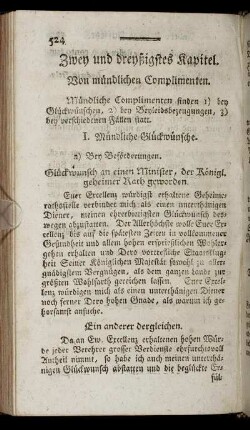 524
Zwey und dreyßigstes Kapitel.
Von mündlichen Complimenten.
Mündliche Complimenten finden 1) bey
Glückwünschen, 2) bey Beyleidsbezeugungen, 3)
bey verschiedenen Fällen statt.
I. Mündliche Glückwünsche.
a) Bey Beförderungen.
Glückwunsch an einen Minister, der Königl.
geheimer Rath geworden.
Euer Excellenz würdigst erhaltene Geheime
rathsstelle verbindet mich als einen unterthänigen
Diener, meinen ehrerbietigsten Glückwunsch des-
wegen abzustatten. Der Allerhöchste wolle Euer Ex-
cellenz bis auf die spätesten Zeiten in vollkommener
Gesundheit und allem hohen ersprießlichen Wohler-
gehen erhalten und Dero vortrefliche Staatsklug-
heit Seiner Königlichen Majestät sowohl zu aller-
gnädigstem Vergnügen, als dem ganzen Lande zur
größten Wohlfarth gereichen lassen. Euer Excel-
lenz würdigen mich als einen unterthänigen Diener
noch ferner Dero hohen Gnade, als warum ich ge-
horsamst ansuche.
Ein anderer dergleichen.
Da an Ew. Excellenz erhaltenen hohen Wür-
de jeder Verehrer grosser Verdienste ehrfurchtsvoll
Antheil nimmt, so habe ich auch meinen unterthä-
nigen Glückwunsch abstatten und die beglückte Er-
fül-